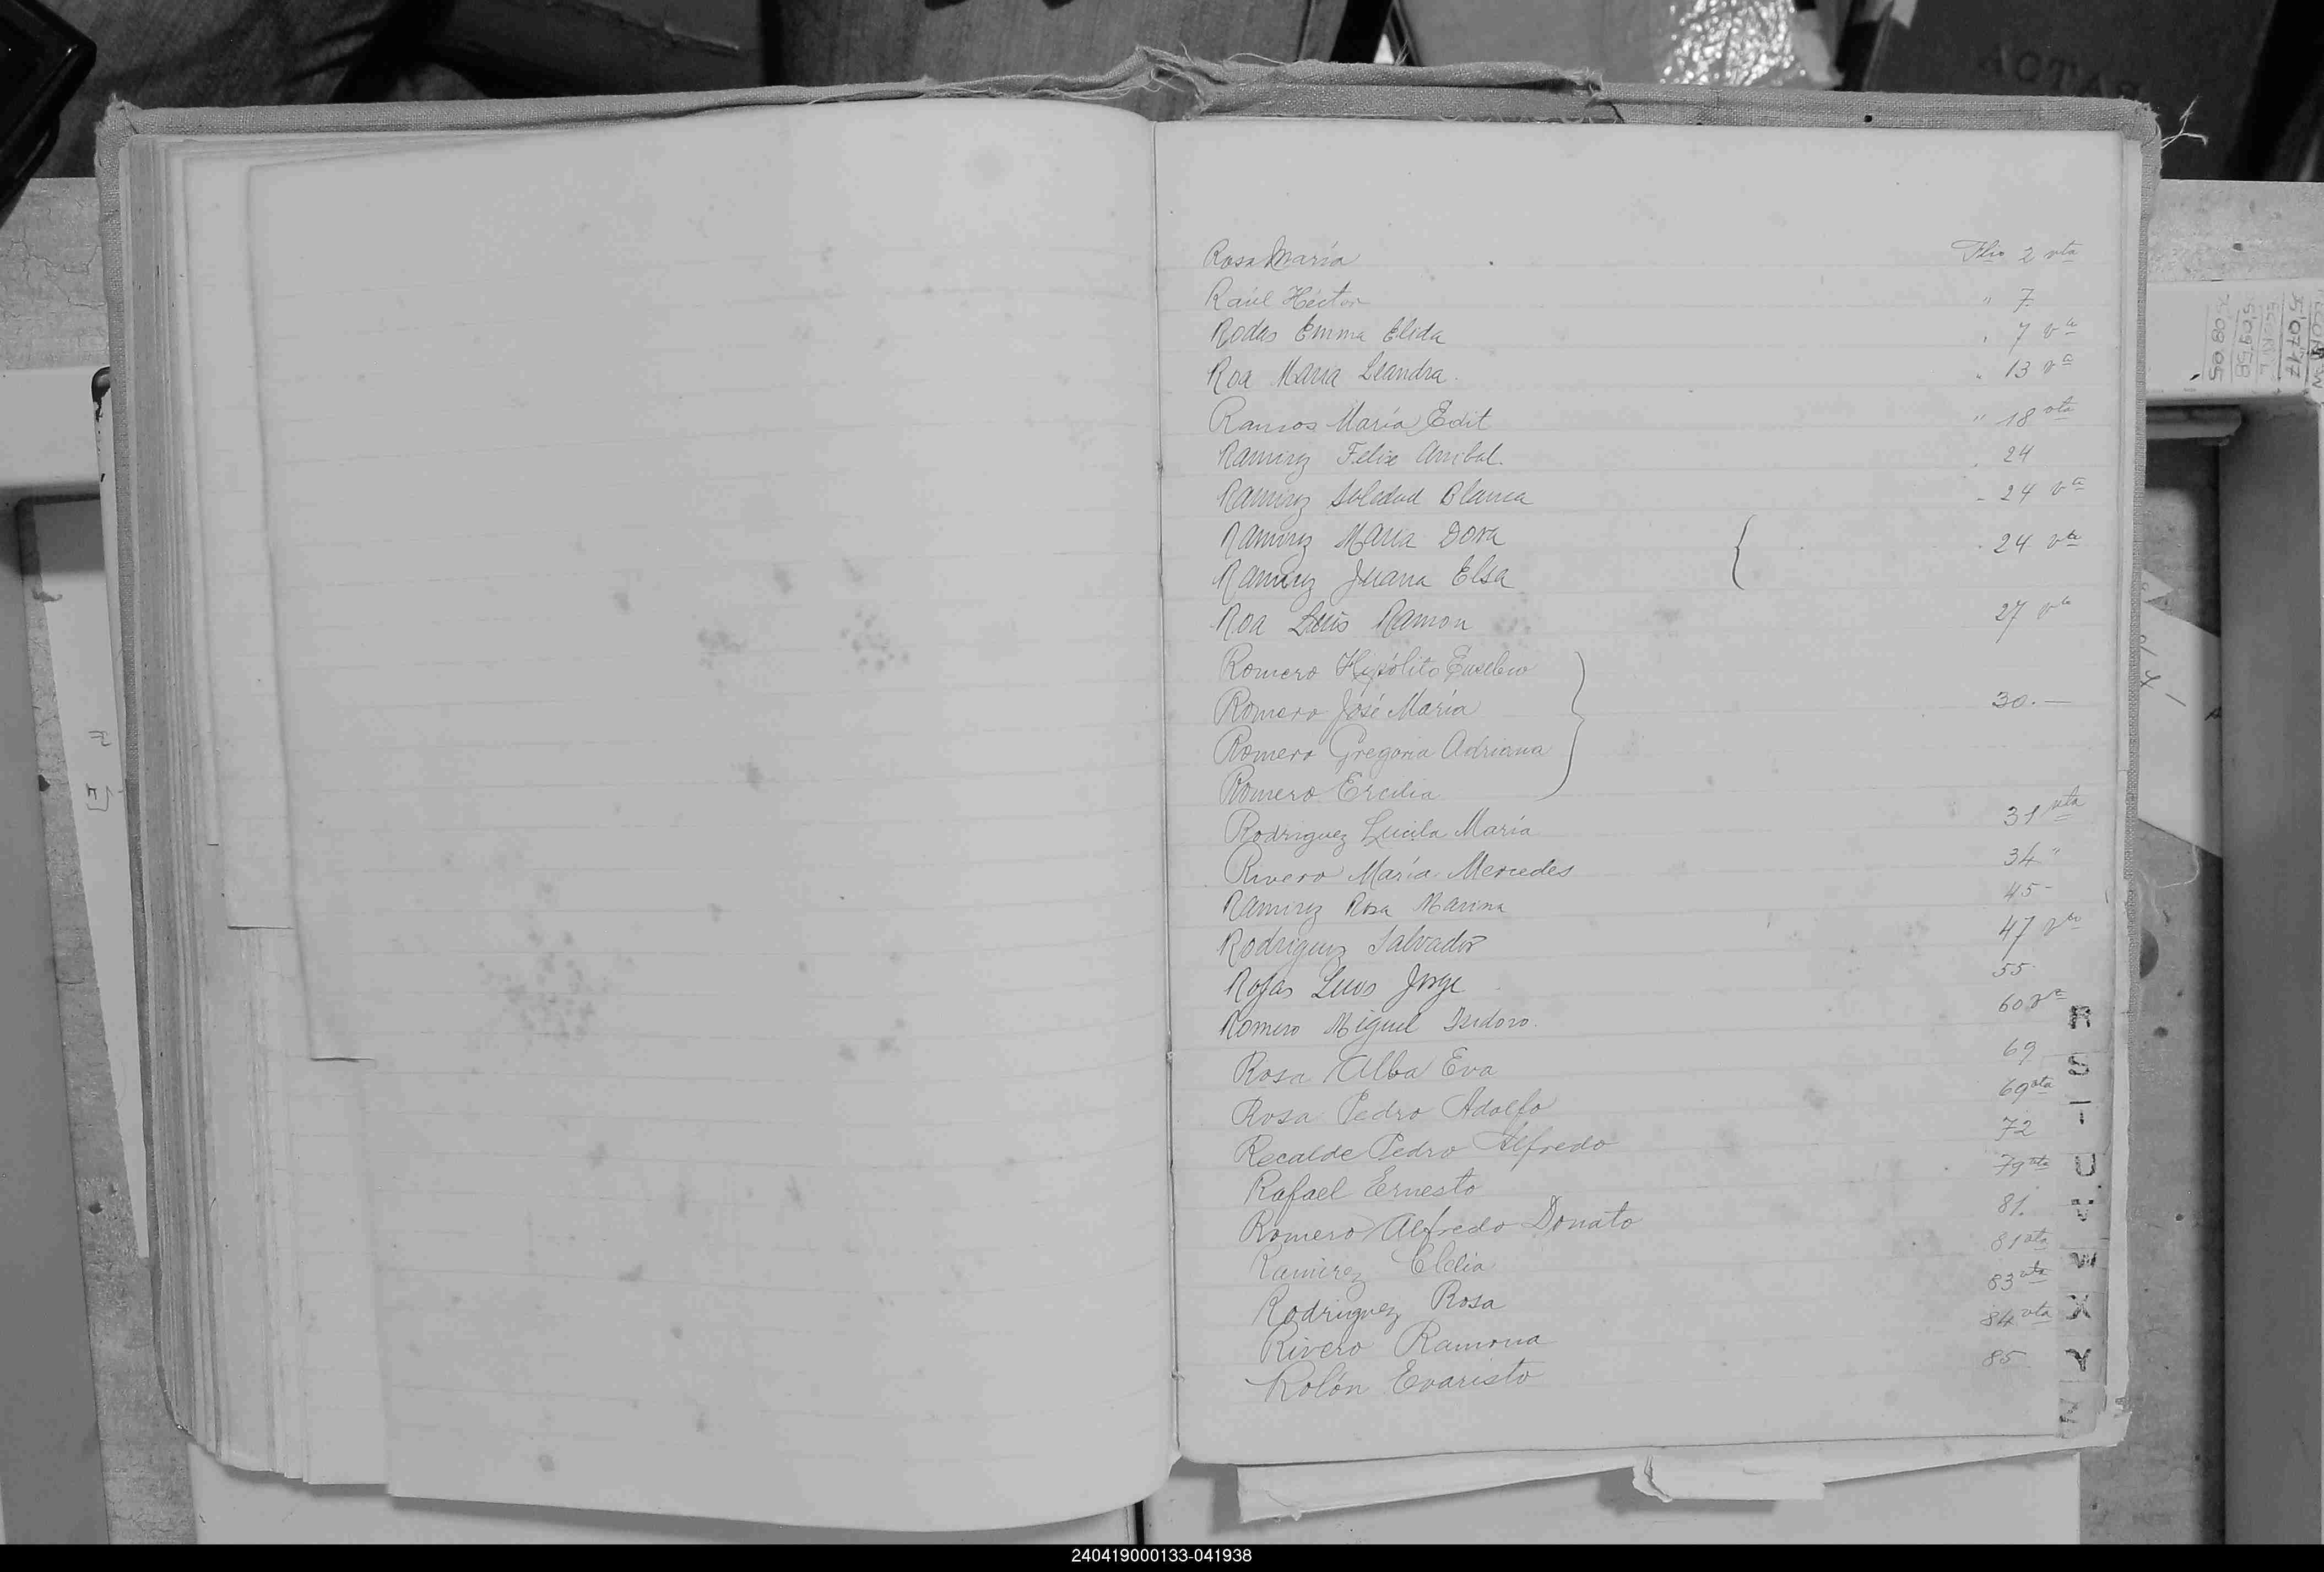 Rosa María Flio 2 vta
Raúl Héctor " 7
Rodas Emma Elida " 7 vta
Roa Maria Leandra. " 13 vta
Ramos María Edit " 18 vta
Ramirez Felix Anibal. " 24
Ramirez Soledad Blanca - 24 vta
Ramirez Maria Dora { . 24 vta
Ramirez Juana Elsa
Roa Luis Ramon 27 vta
Romero Hipólito Eusebio }
Romero José María 30.—
Romero Gregoria Adriana
Romero Ercilia
Rodriguez Lucila María 31 vta
Rivero María Mercedes 34 "
Ramirez Rosa Marina 45-
Rodriguez Salvador 47 vta
Rojas Luis Jorge 55
Romero Miguel Isidoro. 60 vta
Rosa Alba Eva 69
Rosa Pedro Adolfo 69 vta
Recalde Pedro Alfredo 72
Rafael Ernesto 79 vta
Romero Alfredo Donato 81.
Ramirez Clelia 81 vta
Rodriguez Rosa 83 vta
Rivero Ramona 84 vta
Rolón Evaristo 85
R
S
T
U
V
W
X
Y
Z
240419000133-041938